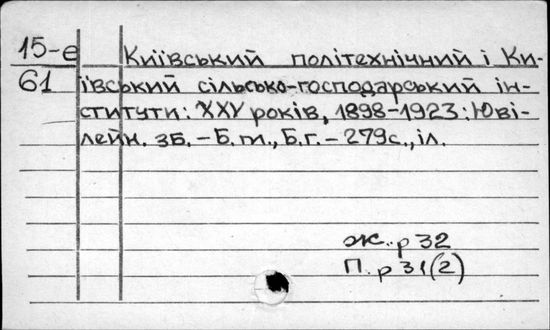 15-е Київський політехнічний і Ки-
61 ївський сільсько-господарський ін-
ститути: XXV років, 1898-1923: Юві-
лейн. зб. – Б.м., Б.г. – 279с., іл.
Ж. р 32
П. р 31(2)